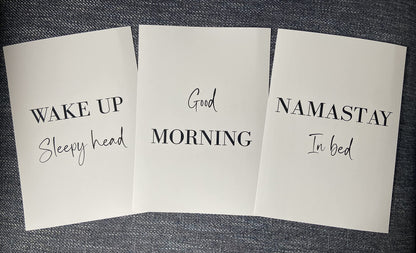 WAKE UP
Sleepy head
Good
MORNING
NAMASTAY
In bed